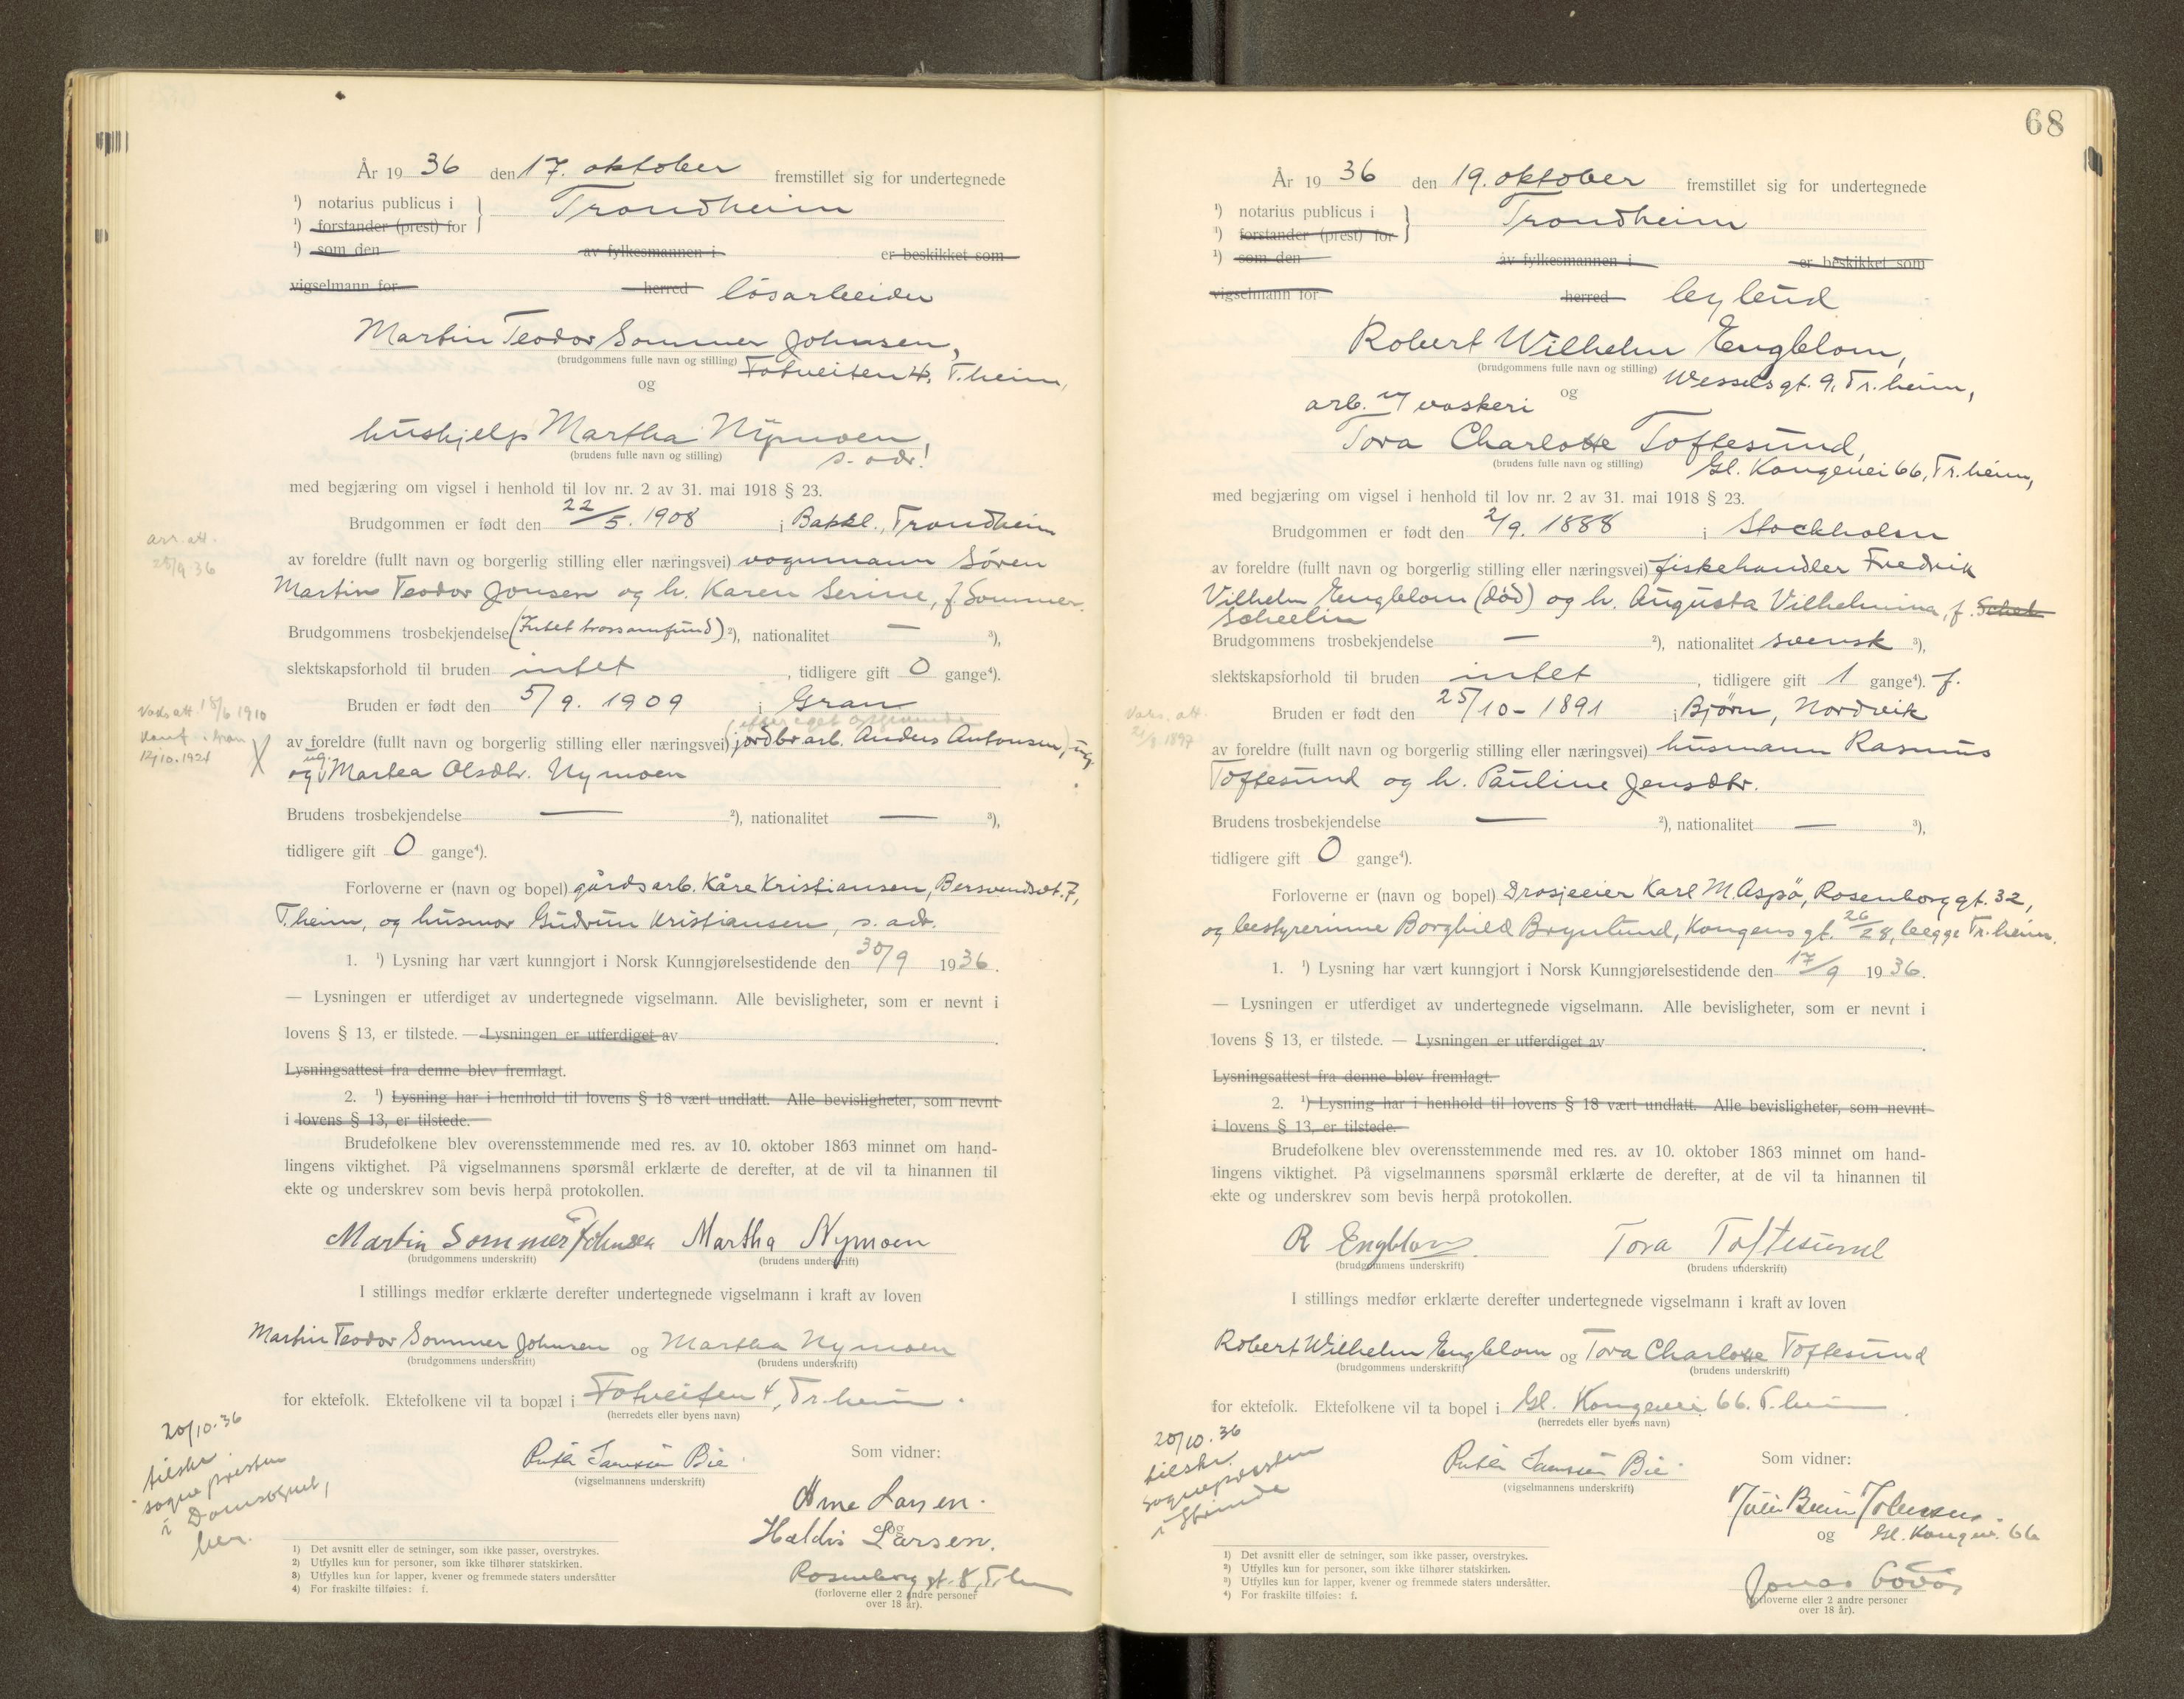 År 1936 den 17. oktober fremstillet sig for undertegnede
¹) notarius publicus i } Trondheim
¹) forstander (prest) for
¹) som den av fylkesmannen i er beskikket som
vigselmann for herred løsarbeider
Martin Teodor Sommer Johnsen,
(brudgommens fulle navn og stilling) Fotveiten 4, T.heim,
og
hushjelp Martha Nymoen,
(brudens fulle navn og stilling) s. adr.
med begjæring om vigsel i henhold til lov nr. 2 av 31. mai 1918 § 23.
Brudgommen er født den 22/5. 1908 i Bakkl., Trondheim
av foreldre (fullt navn og borgerlig stilling eller næringsvei) vognmann Sören
Martin Teodor Jonsen og h. Karen Serine, f. Sommer.
Brudgommens trosbekjendelse (Intet trossamfund) ²), nationalitet — ³),
slektskapsforhold til bruden intet, tidligere gift 0 gange⁴).
Bruden er født den 5/9. 1909 i Gran
(efter eget opgivende
av foreldre (fullt navn og borgerlig stilling eller næringsvei) jordbr.arb. Anders Antonsen) ug.
og ug. Martea Olsdtr. Nymoen
Brudens trosbekjendelse — ²), nationalitet — ³),
tidligere gift 0 gange⁴).
Forloverne er (navn og bopel) gårdsarb. Kåre Kristiansen, Bersvendsvt. 7,
T.heim, og husmor Gudrun Kristiansen, s. adr.
1. ¹) Lysning har vært kunngjort i Norsk Kunngjørelsestidende den 30/9 1936.
— Lysningen er utferdiget av undertegnede vigselmann. Alle bevisligheter, som er nevnt i
lovens § 13, er tilstede. — Lysningen er utferdiget av
Lysningsattest fra denne blev fremlagt.
2. ¹) Lysning har i henhold til lovens § 18 vært undlatt. Alle bevisligheter, som nevnt
i lovens § 13, er tilstede.
Brudefolkene blev overensstemmende med res. av 10. oktober 1863 minnet om hand-
lingens viktighet. På vigselmannens spørsmål erklærte de derefter, at de vil ta hinannen til
ekte og underskrev som bevis herpå protokollen.
Martin Sommer Johnsen Martha Nymoen
(brudgommens underskrift) (brudens underskrift)
I stillings medfør erklærte derefter undertegnede vigselmann i kraft av loven
Martin Teodor Sommer Johnsen og Martha Nymoen
(brudgommens underskrift) (brudens underskrift)
for ektefolk. Ektefolkene vil ta bopæl i Fotveiten 4, Tr.heim.
(herredets eller byens navn)
Ruth Bie
(vigselmannens underskrift)
Som vidner:
Arne Larsen.
og
Haldis Larsen.
Rosenborg gt. 8, T.h
(forloverne eller 2 andre personer
over 18 år).
20/10.36
tilskr.
sognepresten
i Domsognet,
her.
1) Det avsnitt eller de setninger, som ikke passer, overstrykes.
2) Utfylles kun for personer, som ikke tilhører statskirken.
3) Utfylles kun for lapper, kvener og fremmede staters undersåtter
4) For fraskilte tilføies: f.
25/9 36
18/6 1910
68
År 1936 den 19. oktober fremstillet sig for undertegnede
¹) notarius publicus i } Trondheim
¹) forstander (prest) for
¹) som den av fylkesmannen i er beskikket som
vigselmann for herred
Robert Wilhelm Engblom,
(brudgommens fulle navn og stilling) Wessels gt. 9, Tr.heim,
og
arb. v/ vaskeri
Tora Charlotte Toftesund,
(brudens fulle navn og stilling) Gl. Kongevei 66, Tr.heim,
med begjæring om vigsel i henhold til lov nr. 2 av 31. mai 1918 § 23.
Brudgommen er født den 2/9. 1888 i Stockholm
av foreldre (fullt navn og borgerlig stilling eller næringsvei) fiskehandler Fredrik
Vilhelm Engblom (død) og h. Augusta Vilhelmina, f.
Scheelin
Brudgommens trosbekjendelse — ²), nationalitet svensk ³),
slektskapsforhold til bruden intet, tidligere gift 1 gange⁴). f.
Bruden er født den 25/10 - 1891 i Bjørn, Nordvik
av foreldre (fullt navn og borgerlig stilling eller næringsvei) husmann Rasmus
Toftesund og h. Pauline Jensdtr.
Brudens trosbekjendelse — ²), nationalitet — ³),
tidligere gift 0 gange⁴).
Forloverne er (navn og bopel) Drosjeeier Karl M. Aspö, Rosenborg gt. 32,
og bestyrerinne Borghild Brynlund, Kongens gt. 26/28, begge Tr.heim.
1. ¹) Lysning har vært kunngjort i Norsk Kunngjørelsestidende den 17/9 1936.
— Lysningen er utferdiget av undertegnede vigselmann. Alle bevisligheter, som er nevnt i
lovens § 13, er tilstede. — Lysningen er utferdiget av
Lysningsattest fra denne blev fremlagt.
2. ¹) Lysning har i henhold til lovens § 18 vært undlatt. Alle bevisligheter, som nevnt
i lovens § 13, er tilstede.
Brudefolkene blev overensstemmende med res. av 10. oktober 1863 minnet om hand-
lingens viktighet. På vigselmannens spørsmål erklærte de derefter, at de vil ta hinannen til
ekte og underskrev som bevis herpå protokollen.
R Engblom. Tora Toftesund
(brudgommens underskrift) (brudens underskrift)
I stillings medfør erklærte derefter undertegnede vigselmann i kraft av loven
Robert Wilhelm Engblom og Tora Charlotte Toftesund
(brudgommens underskrift) (brudens underskrift)
for ektefolk. Ektefolkene vil ta bopel i Gl. Kongevei 66. T.heim
(herredets eller byens navn)
Ruth Bie
(vigselmannens underskrift)
Som vidner:
Johnsen.
og Gl. Kongev. 66
Jonas
(forloverne eller 2 andre personer
over 18 år).
20/10.36
tilskr.
sognepresten
i Strinda
¹) Det avsnitt eller de setninger, som ikke passer, overstrykes.
²) Utfylles kun for personer, som ikke tilhører statskirken.
³) Utfylles kun for lapper, kvener og fremmede staters undersåtter.
⁴) For fraskilte tilføies: f.